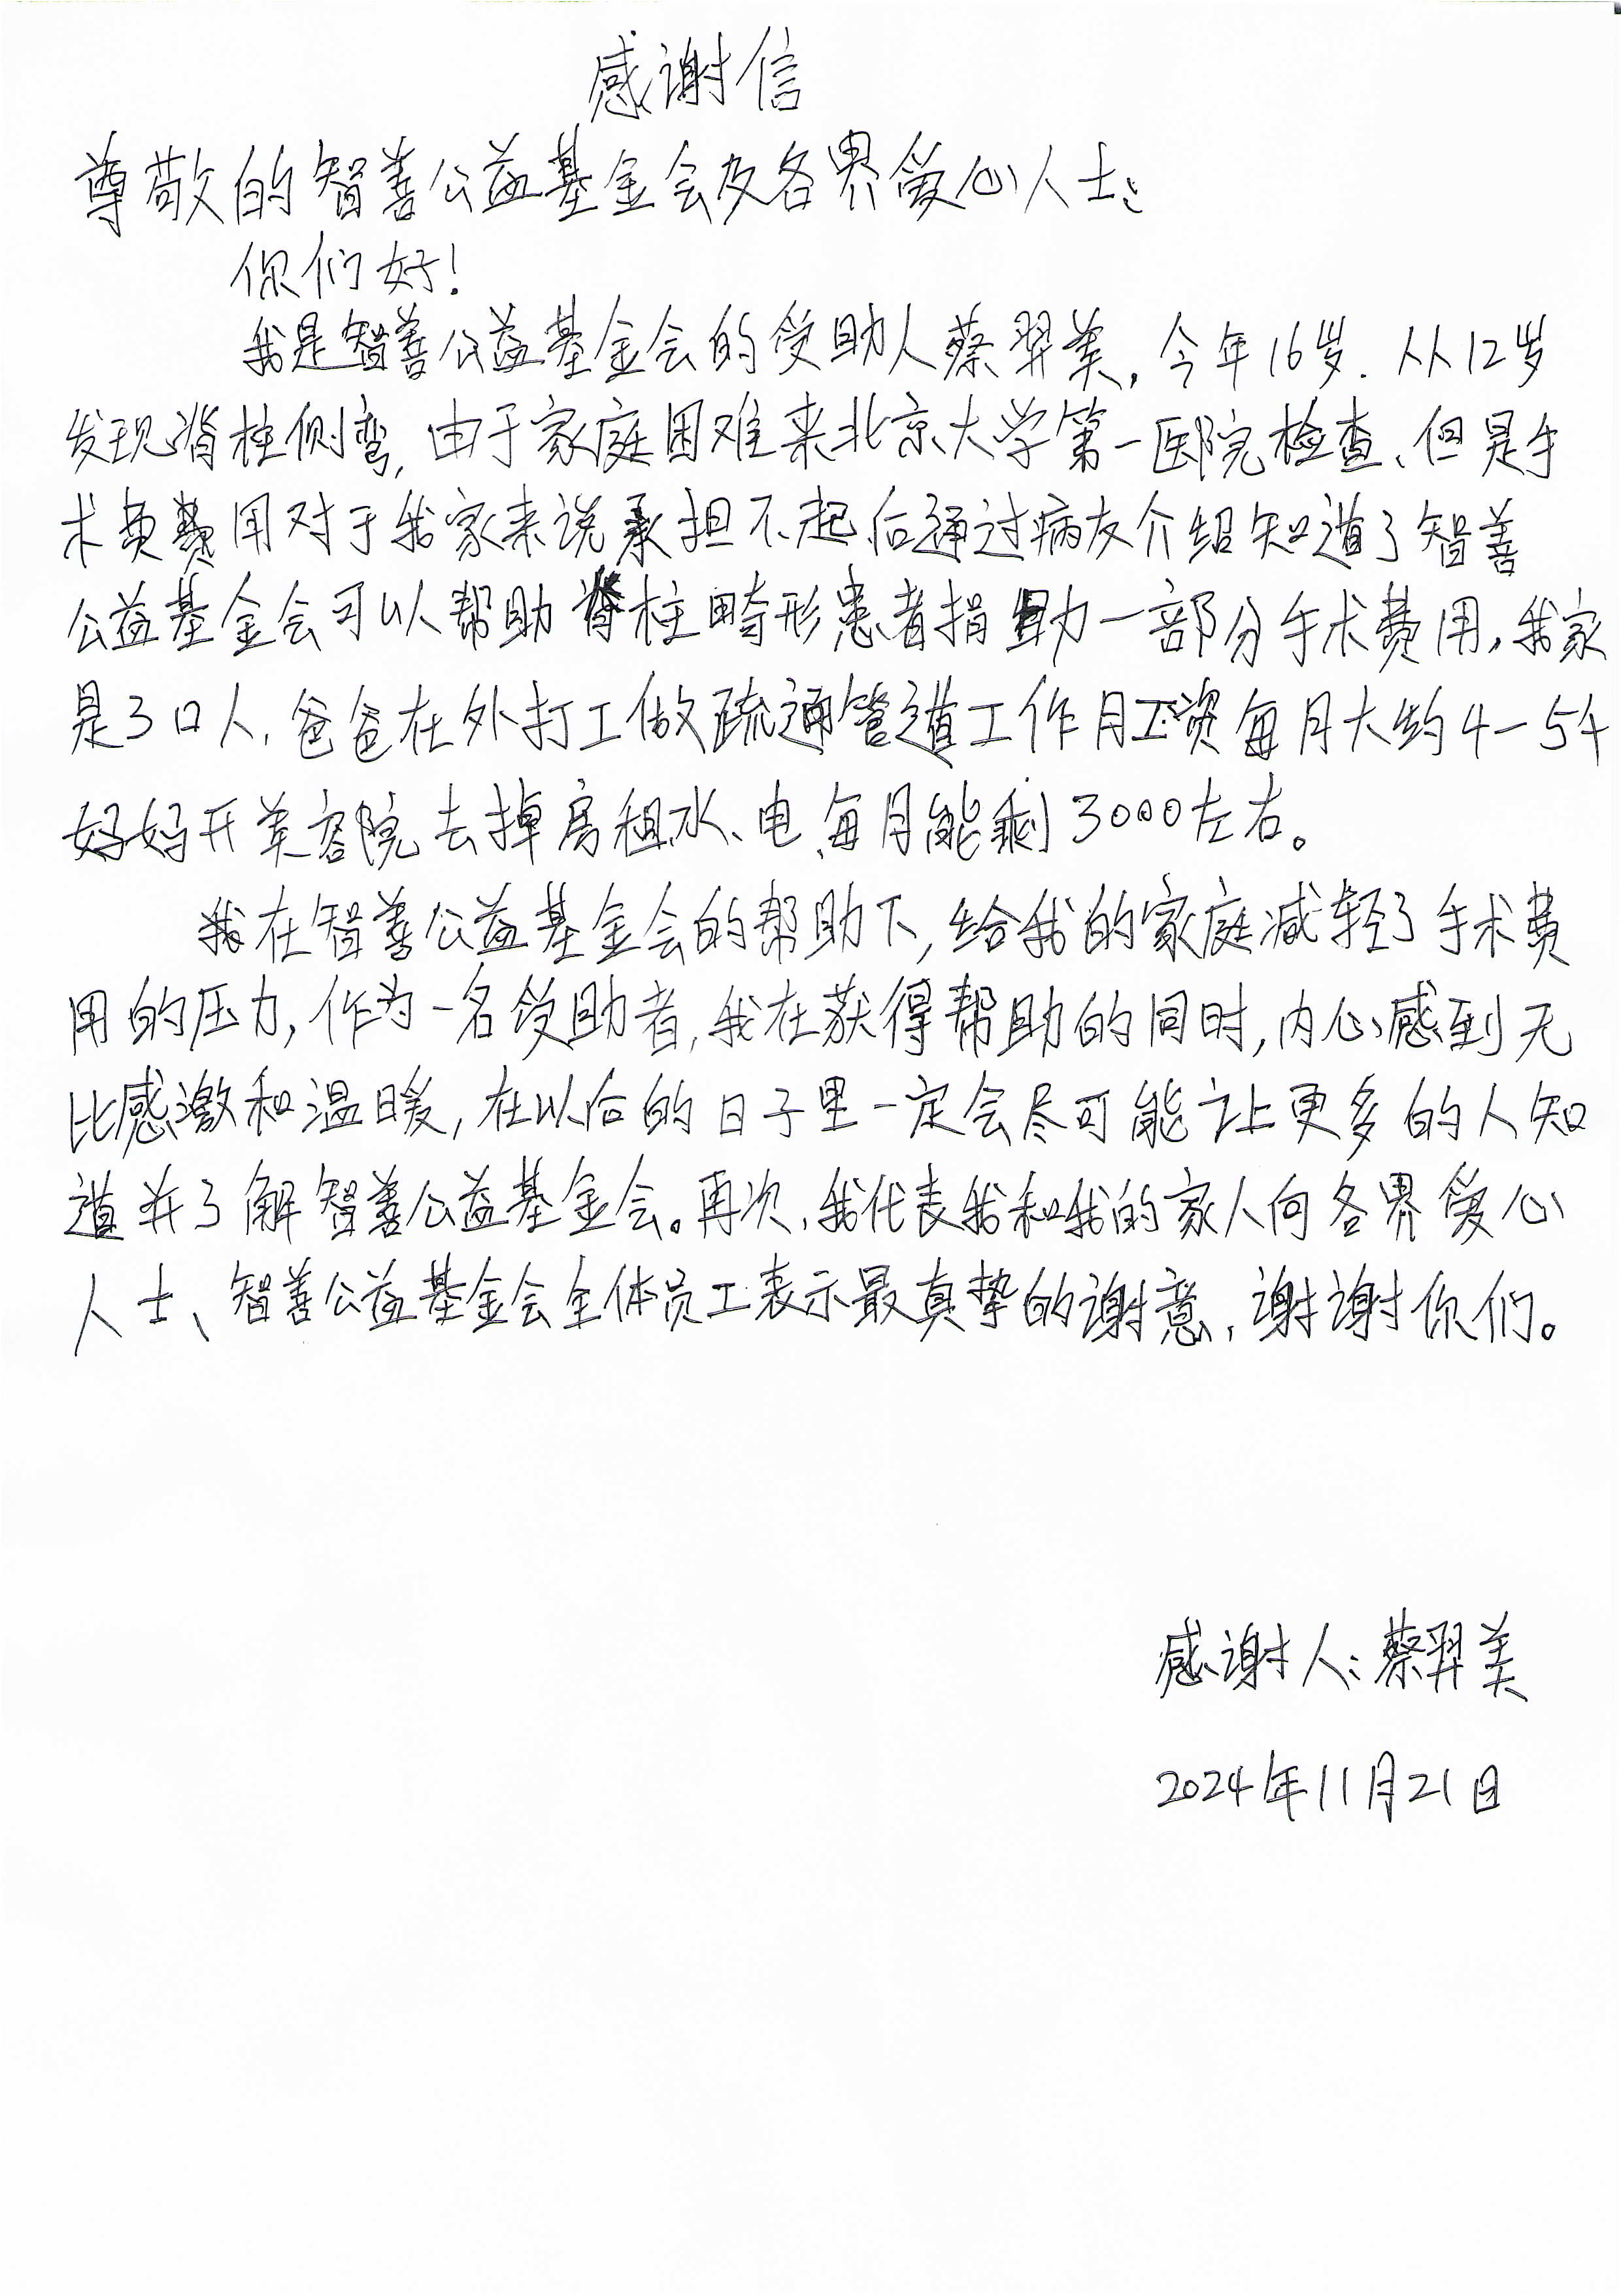 感谢信
尊敬的智善公益基金会及各界爱心人士：
你们好！
我是智善公益基金会的受助人蔡羿美，今年16岁．从12岁
发现脊柱侧弯，由于家庭困难来北京大学第一医院检查、但是手
术费用对于我家来说承担不起、后通过病友介绍知道了智善
公益基金会可以帮助脊柱畸形患者捐助一部分手术费用，我家
是3口人，爸爸在外打工做疏通管道工作月工资每月大约4－5千
妈妈开美容院去掉房租水、电、每月能剩3000左右。
我在智善公益基金会的帮助下，给我的家庭减轻了手术费
用的压力，作为一名受助者，我在获得帮助的同时，内心感到无
比感激和温暖，在以后的日子里一定会尽可能让更多的人知
道并了解智善公益基金会。再次，我代表我和我的家人向各界爱心
人士、智善公益基金会全体员工表示最真挚的谢意，谢谢你们。
感谢人：蔡羿美
2024年11月21日